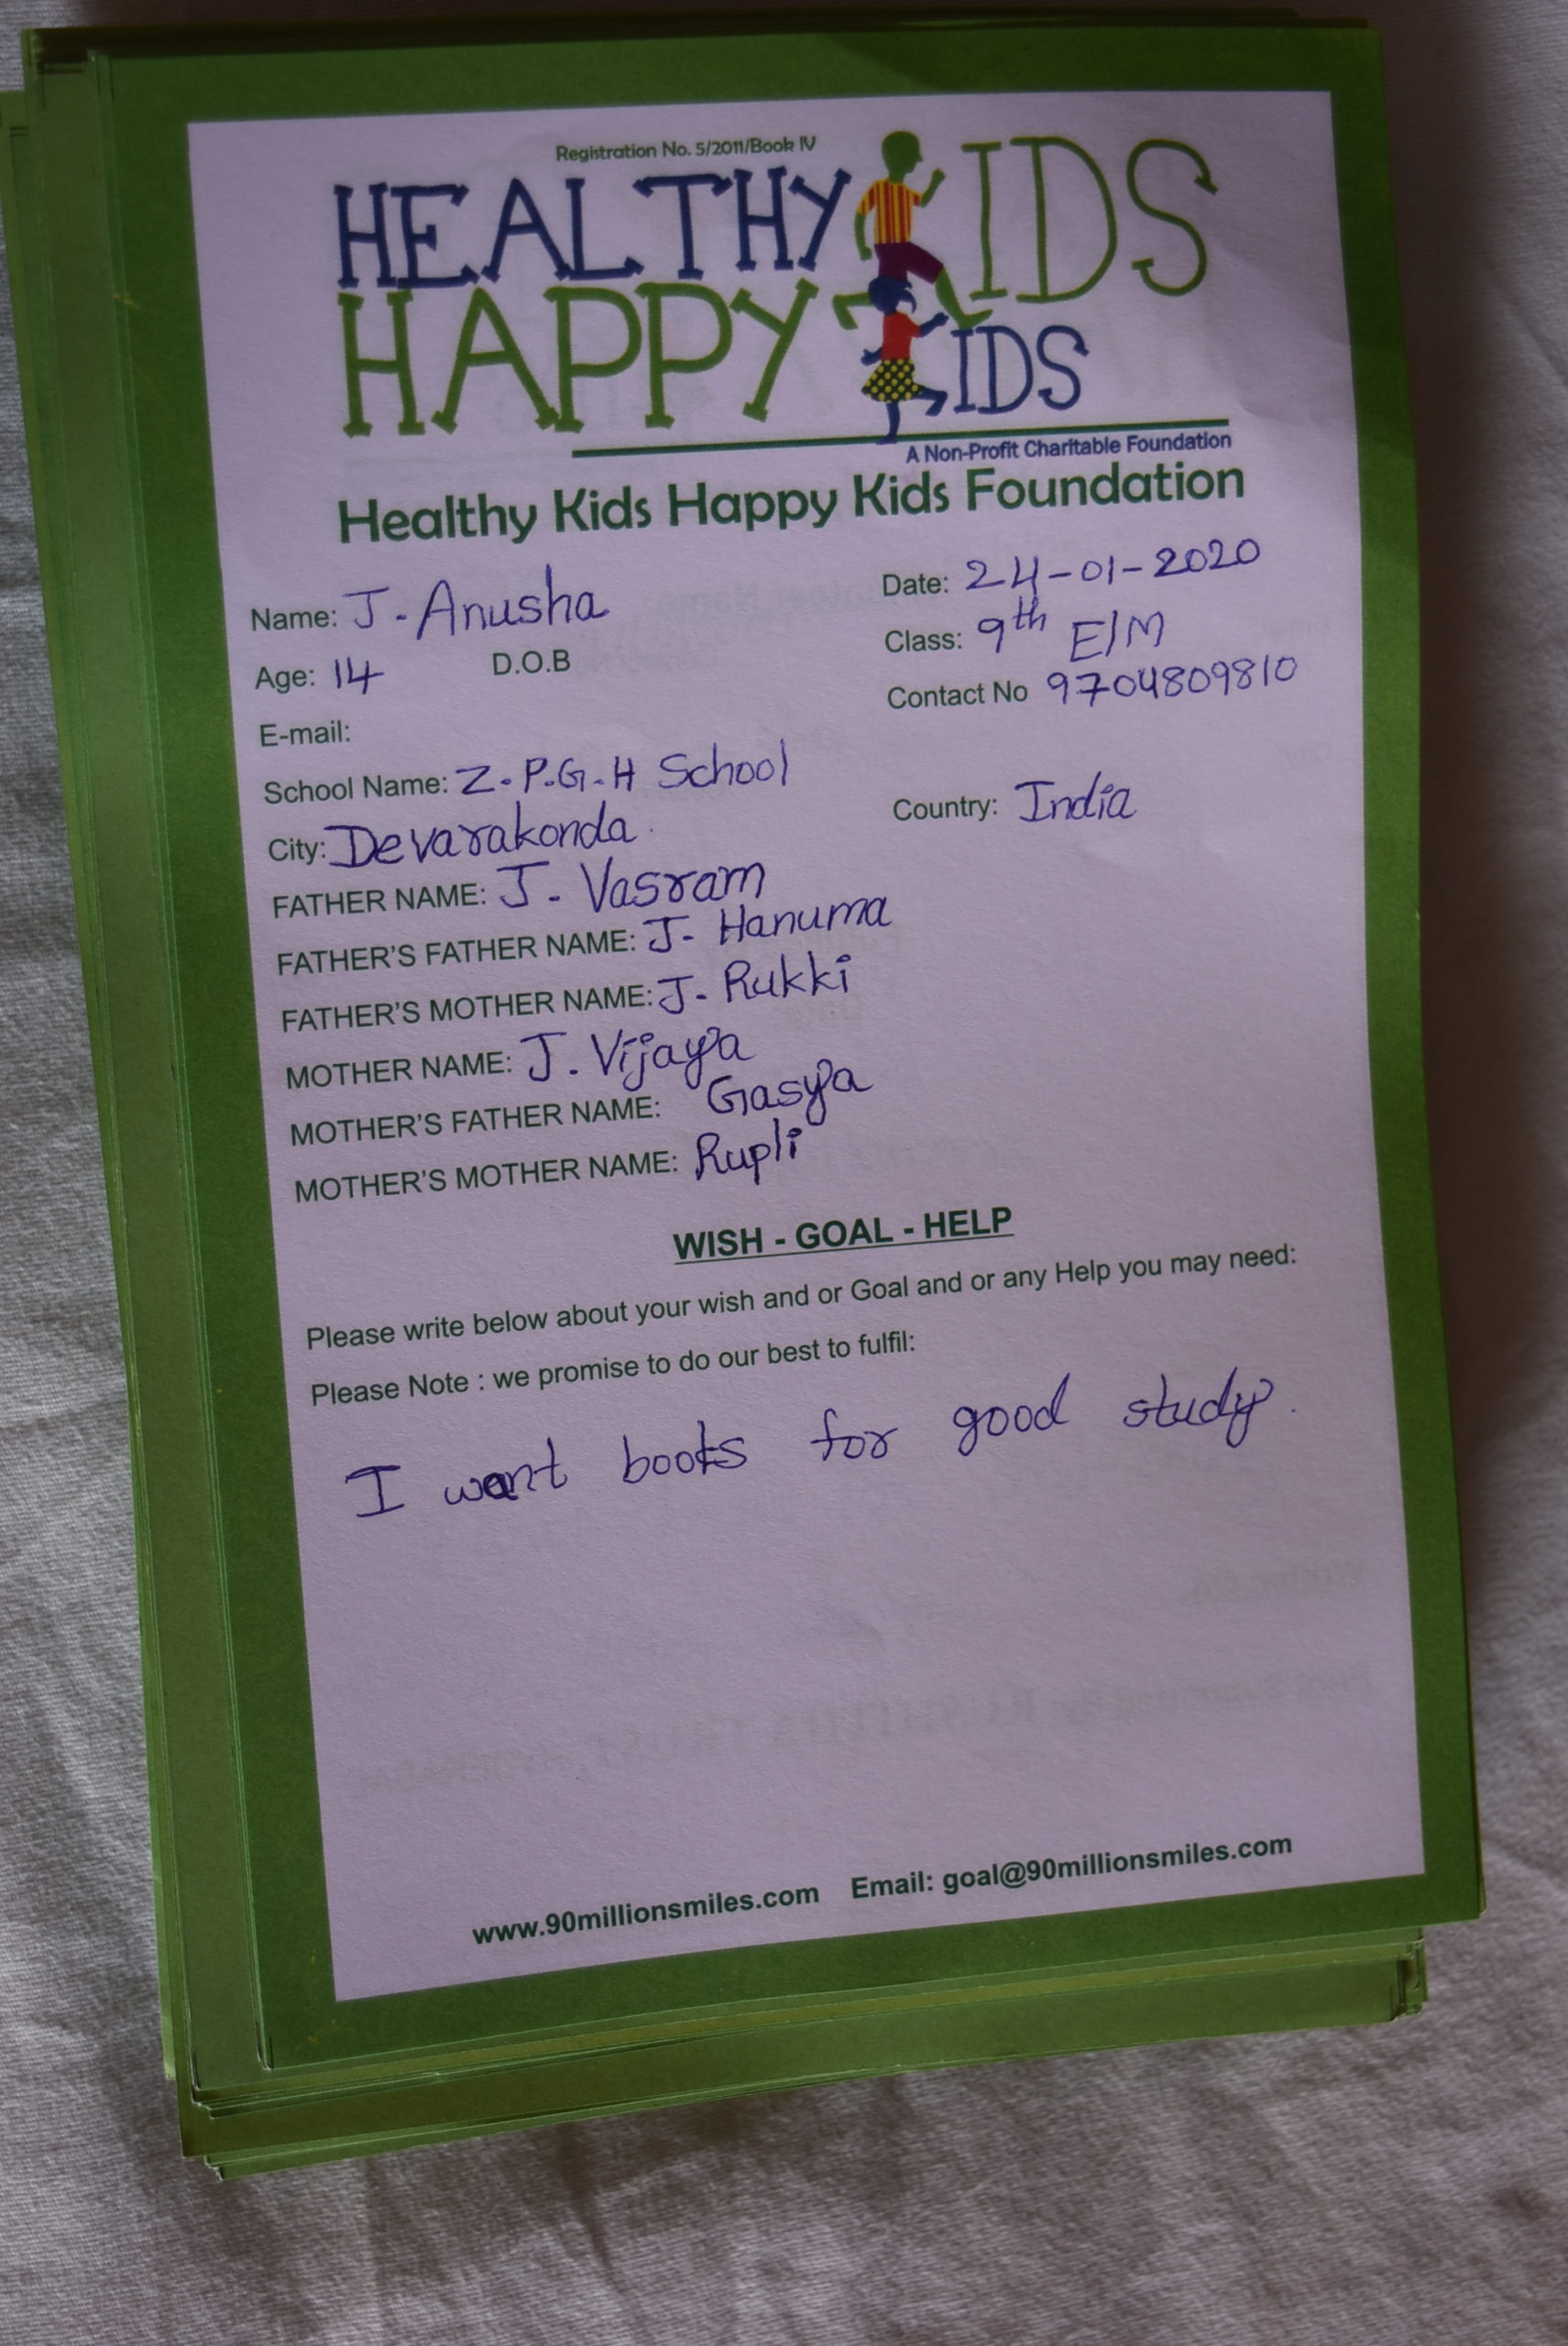 Registration No. 5/2011/Book IV
HEALTHY KIDS
HAPPY KIDS
A Non-Profit Charitable Foundation
Healthy Kids Happy Kids Foundation
Name: J. Anusha Date: 24-01-2020
Age: 14 D.O.B Class: 9th E/M
E-mail: Contact No 9704809810
School Name: Z.P.G.H School
City: Devarakonda. Country: India
FATHER NAME: J. Vasram
FATHER'S FATHER NAME: J. Hanuma
FATHER'S MOTHER NAME: J. Rukki
MOTHER NAME: J. Vijaya
MOTHER'S FATHER NAME: Gasya
MOTHER'S MOTHER NAME: Rupli
WISH - GOAL - HELP
Please write below about your wish and or Goal and or any Help you may need:
Please Note : we promise to do our best to fulfil:
I want books for good study.
www.90millionsmiles.com Email: goal@90millionsmiles.com